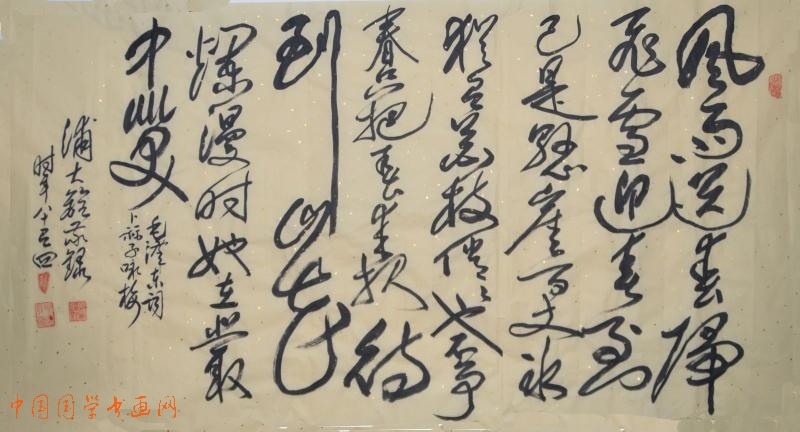 風雨送春歸
飛雪迎春到
已是懸崖百丈冰
猶有花枝俏俏也不爭
春只把春來報待
到山花
爛漫時她在叢
中笑
毛澤東詞
卜算子咏梅
浦大錄
时年八十四
中国国学书画网